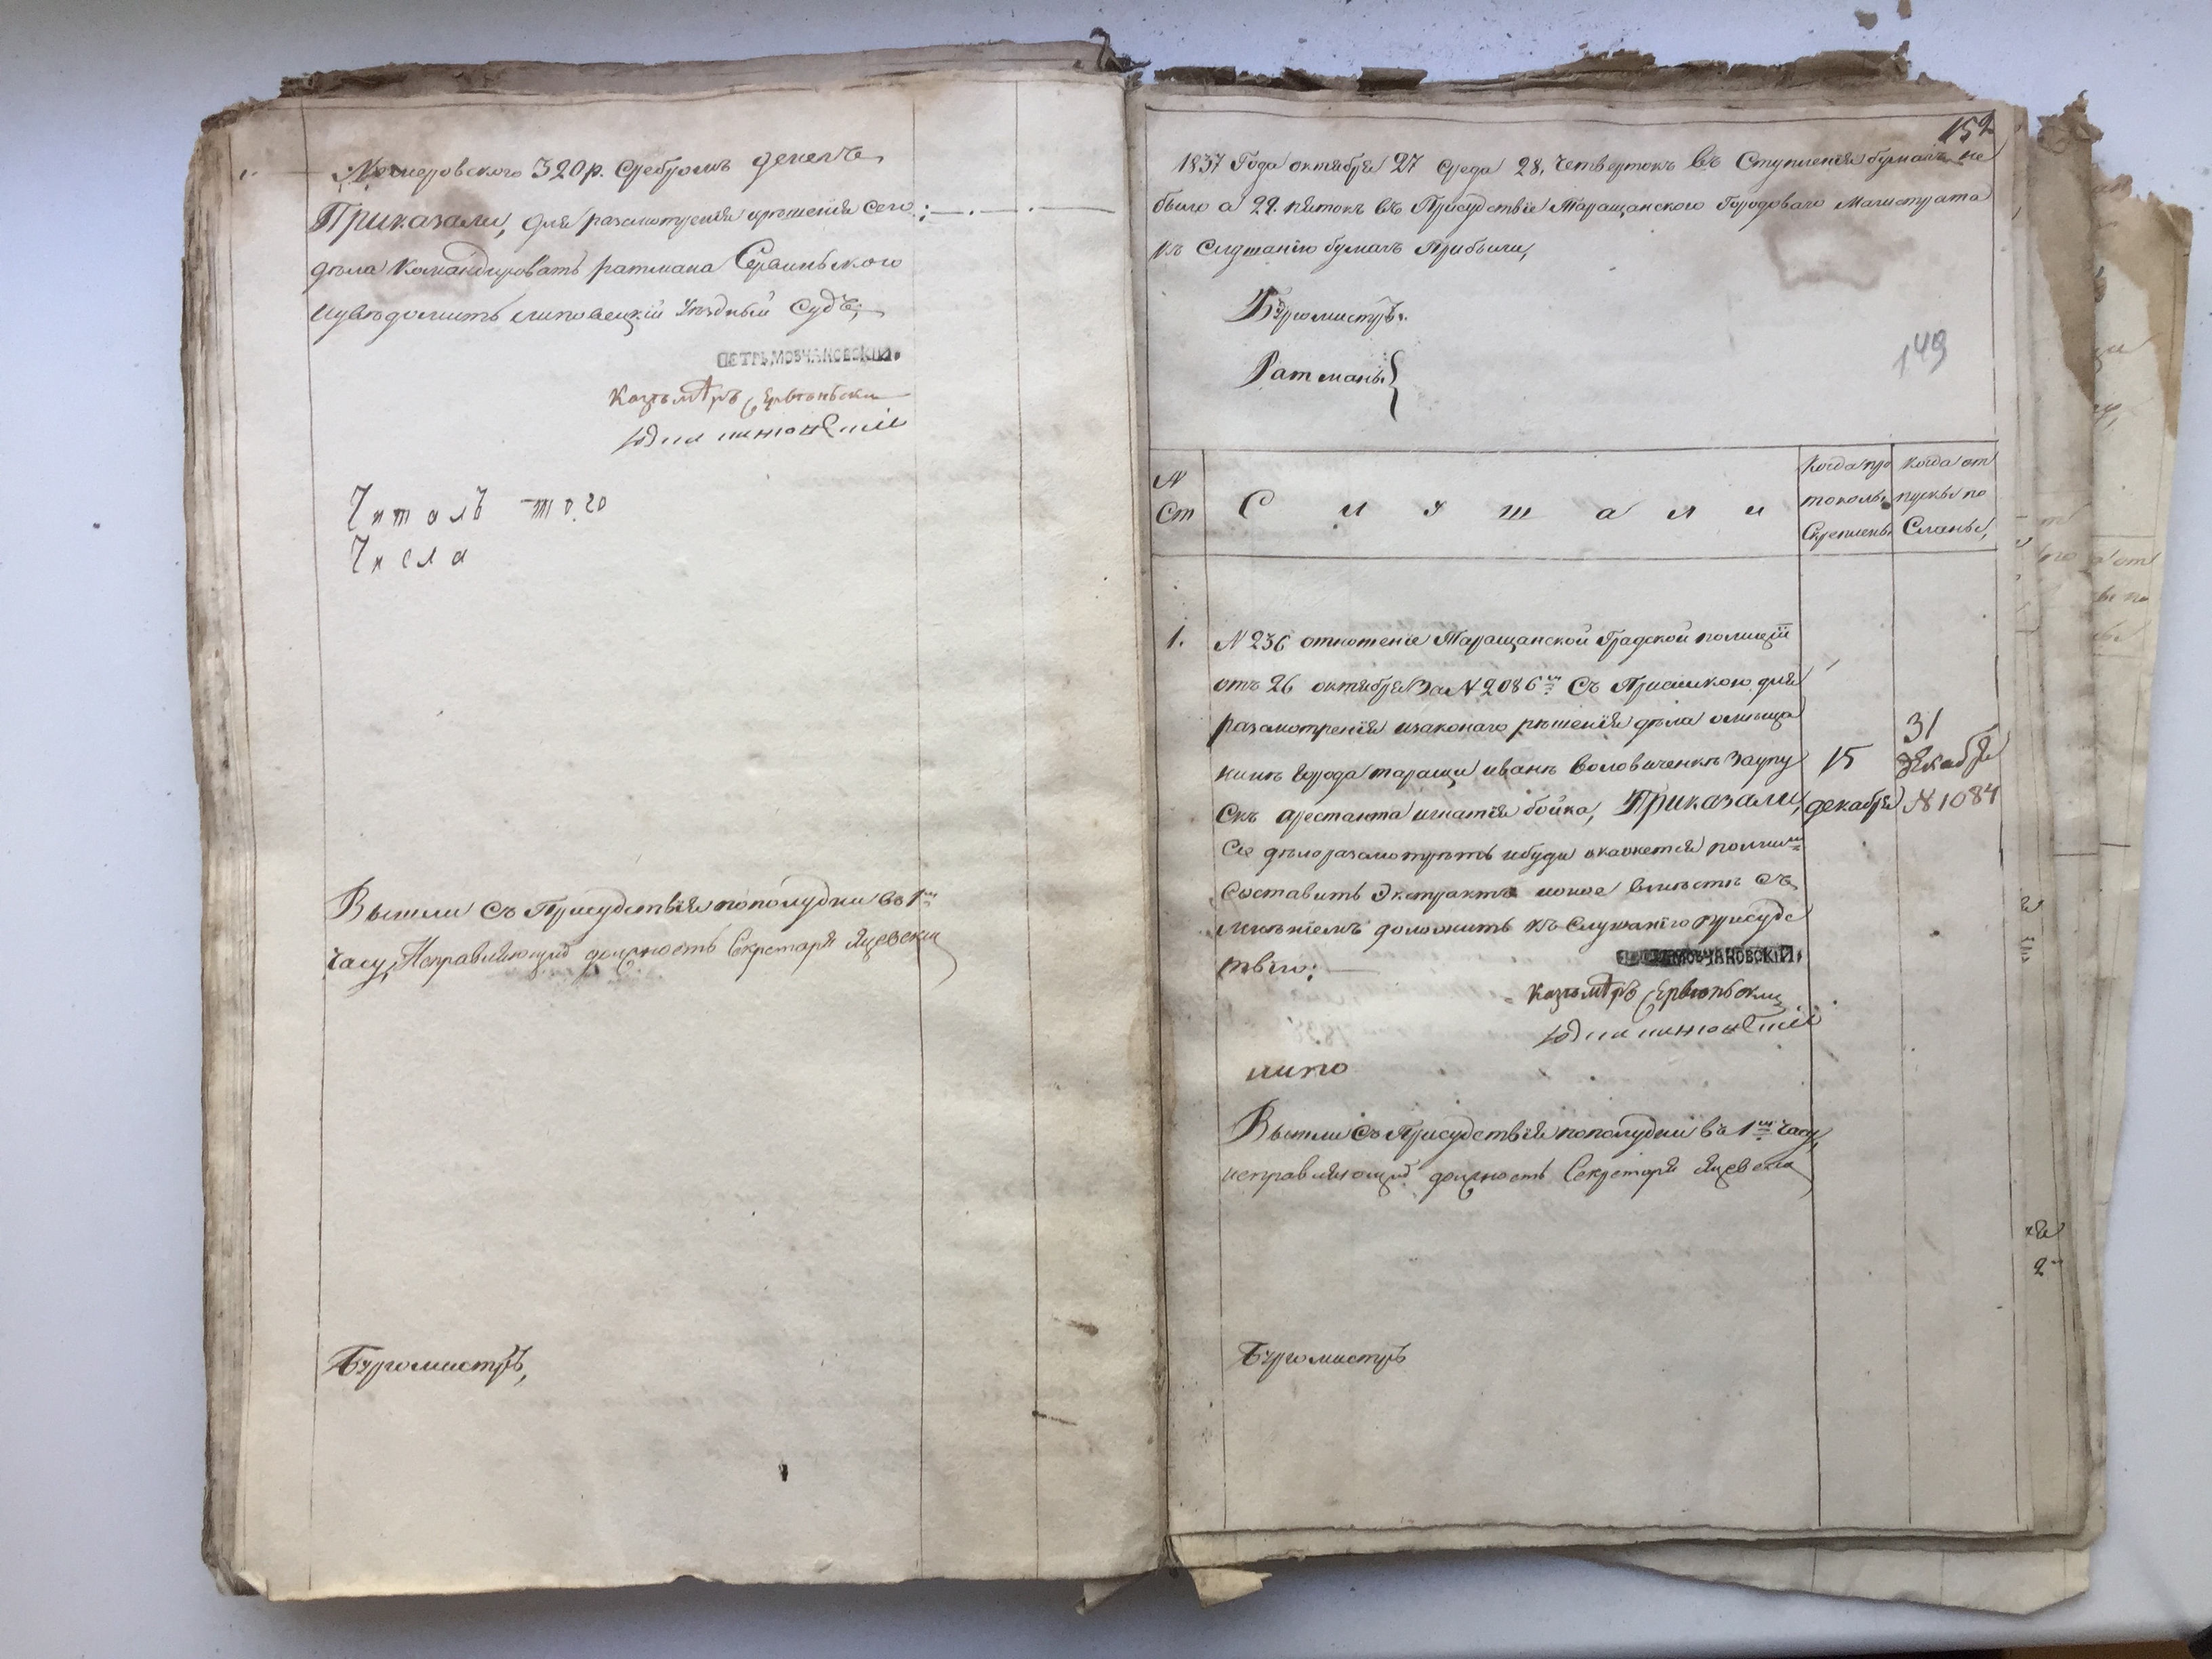 320 р. сребромъ денегъ
Приказали, для разсмотрения ирешения сего:
дѣла командировать ратмана Сервинского
иувѣдомить липовецкій уѣздный Судъ,
ПЕТРЪ МОВЧАНОВСКІЙ
Казъмѣръ
Читалъ того
Числа
Вышли съ Присудствія пополудни въ 1м
часу, Исправляющій должность Секретаря Яцевски
Бургомистръ,
152
1837 Года октября 27 Среда 28, Четвертокъ въ Ступления бумагъ не
было а 29. пятокъ въ Присудствіе Таращанского Городоваго Магистрата
къ Слушанію бумагъ Прибыли,
Бургомистръ.
Ратманы {
149
N Ст
Слушали
Когда про
токолы
Скреплены
Когда от
пуски по
Сланы,
1. N 236 отношеніе Таращанской Градской полиціи
отъ 26 октября За N 2086м Съ Присилкою для
разсмотренія изаконаго рѣшенія дѣла омѣща
нинѣ города таращи иванѣ воловиченкѣ Заупу
Скъ арестанта игнатія бойка, Приказали,
Се дѣло разсмотрѣть ибуди окажется
Составить Экстрактъ ионое вмѣстѣ съ
мнѣніемъ доложить къ Слушанію присудс
твію:
15
декабря
31
Декабря
N 1084
МОВЧАНОВСКІЙ
Казъмѣръ
Вышли Съ Присудствія пополудни въ 1м часу,
исправляющій должность Секретаря Яцевски
Бургомистръ